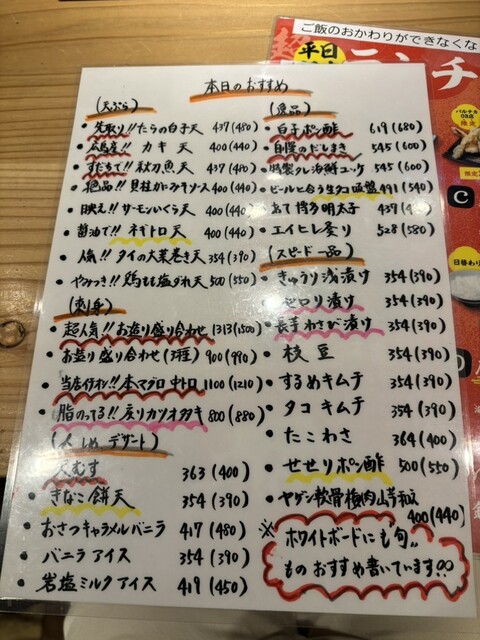 本日のおすすめ
(天ぷら)
・先取り!! たらの白子天 437(480)
・広島産!! カキ天 400(440)
・すだちで!! 秋刀魚天 437(480)
・絶品!! 貝柱ガーリックソース 400(440)
・映え!! サーモンいくら天 400(440)
・醤油で!! ネギトロ天 400(440)
・人気!! タイの大葉巻き天 354(390)
・やみつき!! 鶏もも塩ダれ天 500(550)
(刺身)
・超人気!! お造り盛り合わせ 1313(1500)
・お造り盛り合わせ(3種) 900(990)
・当店イチオシ!! 本マグロ中トロ 1100(1210)
・脂のってる!! 戻りカツオタタキ 800(880)
(〆デザート)
・天むす 363(400)
・きなこ餅天 354(390)
・おさつキャラメルバニラ 417(480)
・バニラアイス 354(390)
・岩塩ミルクアイス 419(450)
(逸品)
・白子ポン酢 619(680)
・自慢のだしまき 545(600)
・特製タレ海鮮ユッケ 545(600)
・ビールに合う生タコ吸盤 491(540)
・あて博多明太子 437(480)
・エイヒレ炙り 528(580)
(スピード一品)
・きゅうり浅漬け 354(390)
・セロリ漬け 354(390)
・長芋わさび漬け 354(390)
・枝豆 354(390)
・するめキムチ 354(390)
・タコキムチ 354(390)
・たこわさ 364(400)
・せせりポン酢 500(550)
・ヤゲン軟骨梅肉山芋和え
400(440)
※ホワイトボードにも旬
ものおすすめ書いています!!
ご飯のおかわりができなくな
平日
ランチ
限定
C
日替わり